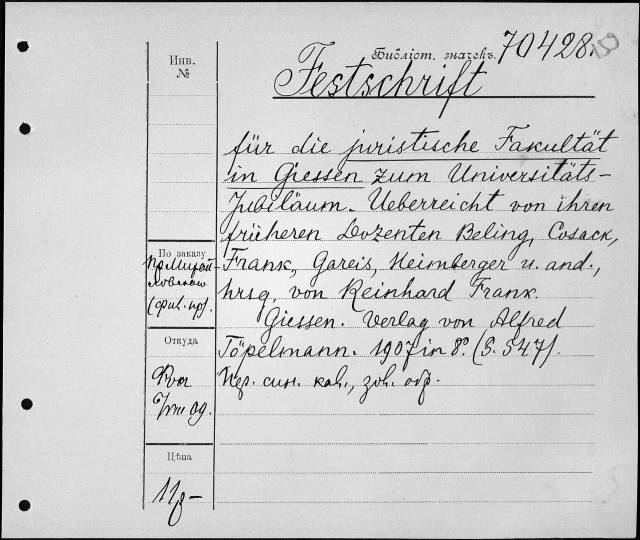 Библіот. значекъ. 70428.
Инв.
№
Festschrift
für die juristische Fakultät
in Giessen zum Universitäts-
Jubiläum. Ueberreicht von ihren
früheren Dozenten Beling, Cosack,
Frank, Gareis, Heimberger u. and.,
hrsg. von Reinhard Frank.
Giessen. Verlag von Alfred
Töpelmann. 1907 in 8º. (S. 547).
По заказу
Откуда
Цѣна